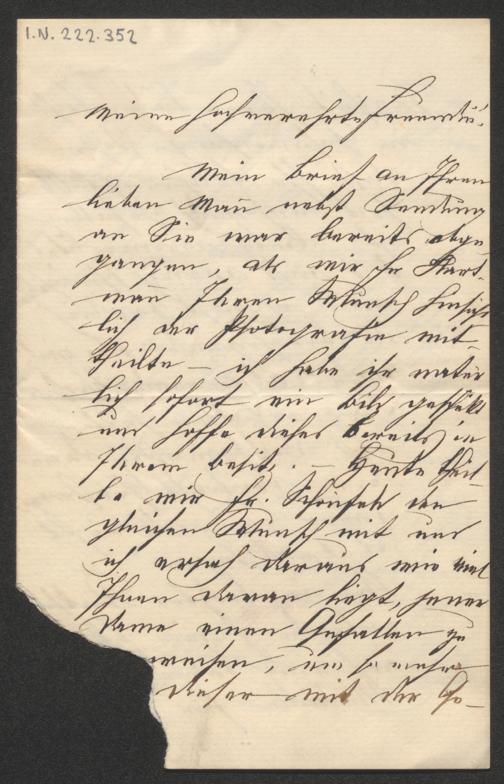 I.N. 222.352
Meine hochverehrte Freundin!
Mein Brief an Ihren
lieben Mañ nebst Sendung
an Sie war bereits abge
gangen, als mir Fr Hart-
mañ Ihren Wunsch hinsicht
lich der Photografie mit-
theilte – ich habe ihr natür
lich sofort ein Bild geschickt
und hoffe dieses bereits in
Ihrem Besitz. – Heute theil
te mir Fr. den
gleichen Wunsch mit und
ich ersah daraus wie viel
Ihnen daran liegt, jener
Dame einen Gefallen zu
weisen, um so mehr
dieser mit der Ge-